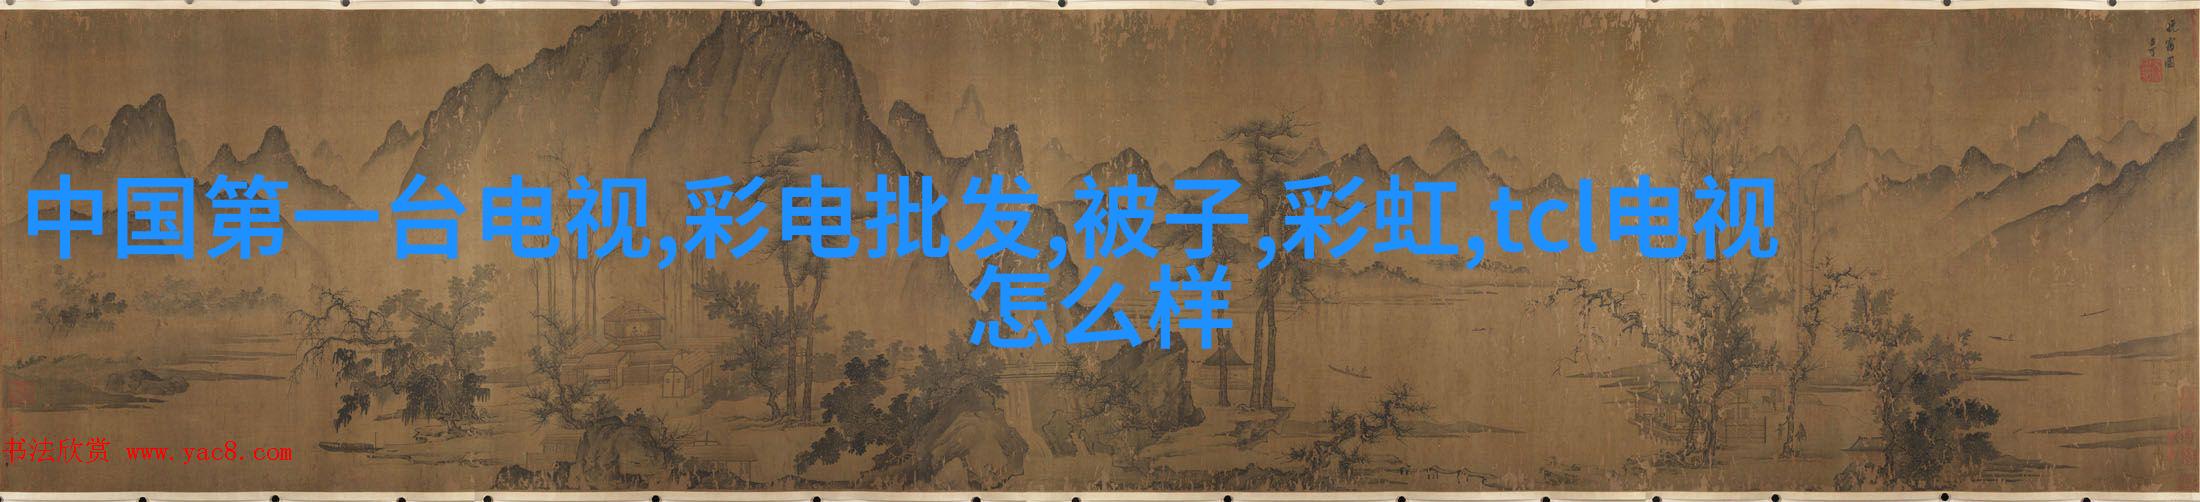 中国第一台电视,彩电批发,被子,彩虹,tcl电视
怎么样
书法欣赏 www.yac8.com